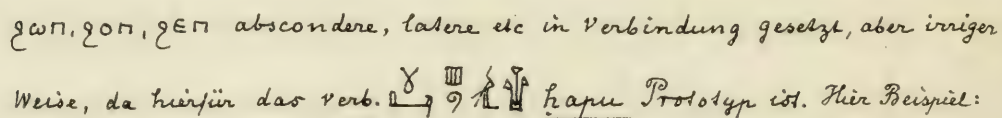 ϩωⲡ, ϩοⲡ, ϩⲉⲡ abscondere, latere etc in Verbindung gesetzt, aber irriger
Weise, da hierfür das verb. ḥapu Prototyp ist. Hier Beispiel: